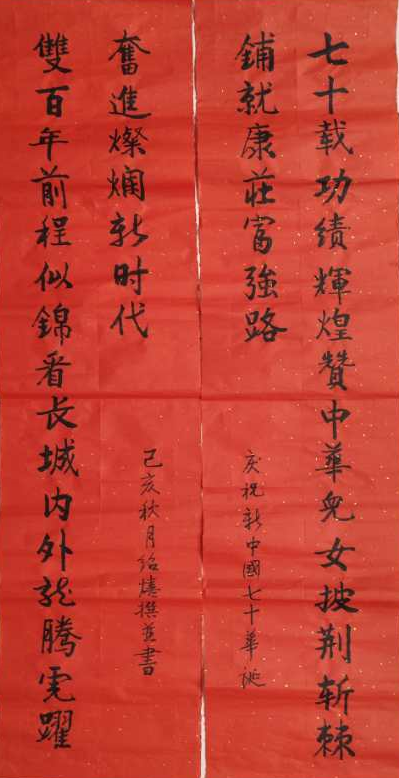 七十载功绩輝煌贊中華兒女披荆斬棘
鋪就康莊富強路
庆祝新中國七十華诞
雙百年前程似錦看长城内外龙騰虎躍
奮進燦爛新时代
己亥秋月绍撰並書